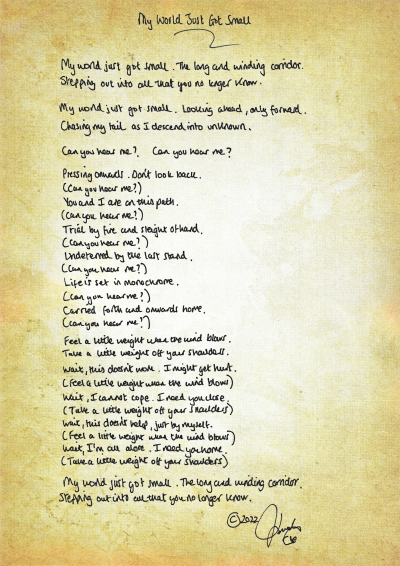 My World Just Got Small
My world just got small. The long and winding corridor.
Stepping out into all that you no longer know.
My world just got small. Looking ahead, only forward.
Chasing my tail as I descend into unknown.
Can you hear me? Can you hear me?
Pressing onwards. Don't look back.
(Can you hear me?)
You and I are on this path.
(Can you hear me?)
Trial by fire and sleight of hand.
(Can you hear me?)
Undeterred by the last stand.
(Can you hear me?)
Life is set in monochrome.
(Can you hear me?)
Carried forth and onwards home.
(Can you hear me?)
Feel a little weight when the wind blows.
Take a little weight off your shoulders.
Wait, this doesn't work. I might get hurt.
(Feel a little weight when the wind blows)
Wait, I cannot cope. I need you close.
(Take a little weight off your shoulders)
Wait, this doesn't help, just by myself.
(Feel a little weight when the wind blows)
Wait, I'm all alone. I need you home.
(Take a little weight off your shoulders)
My world just got small. The long and winding corridor.
Stepping out into all that you no longer know.
©2022